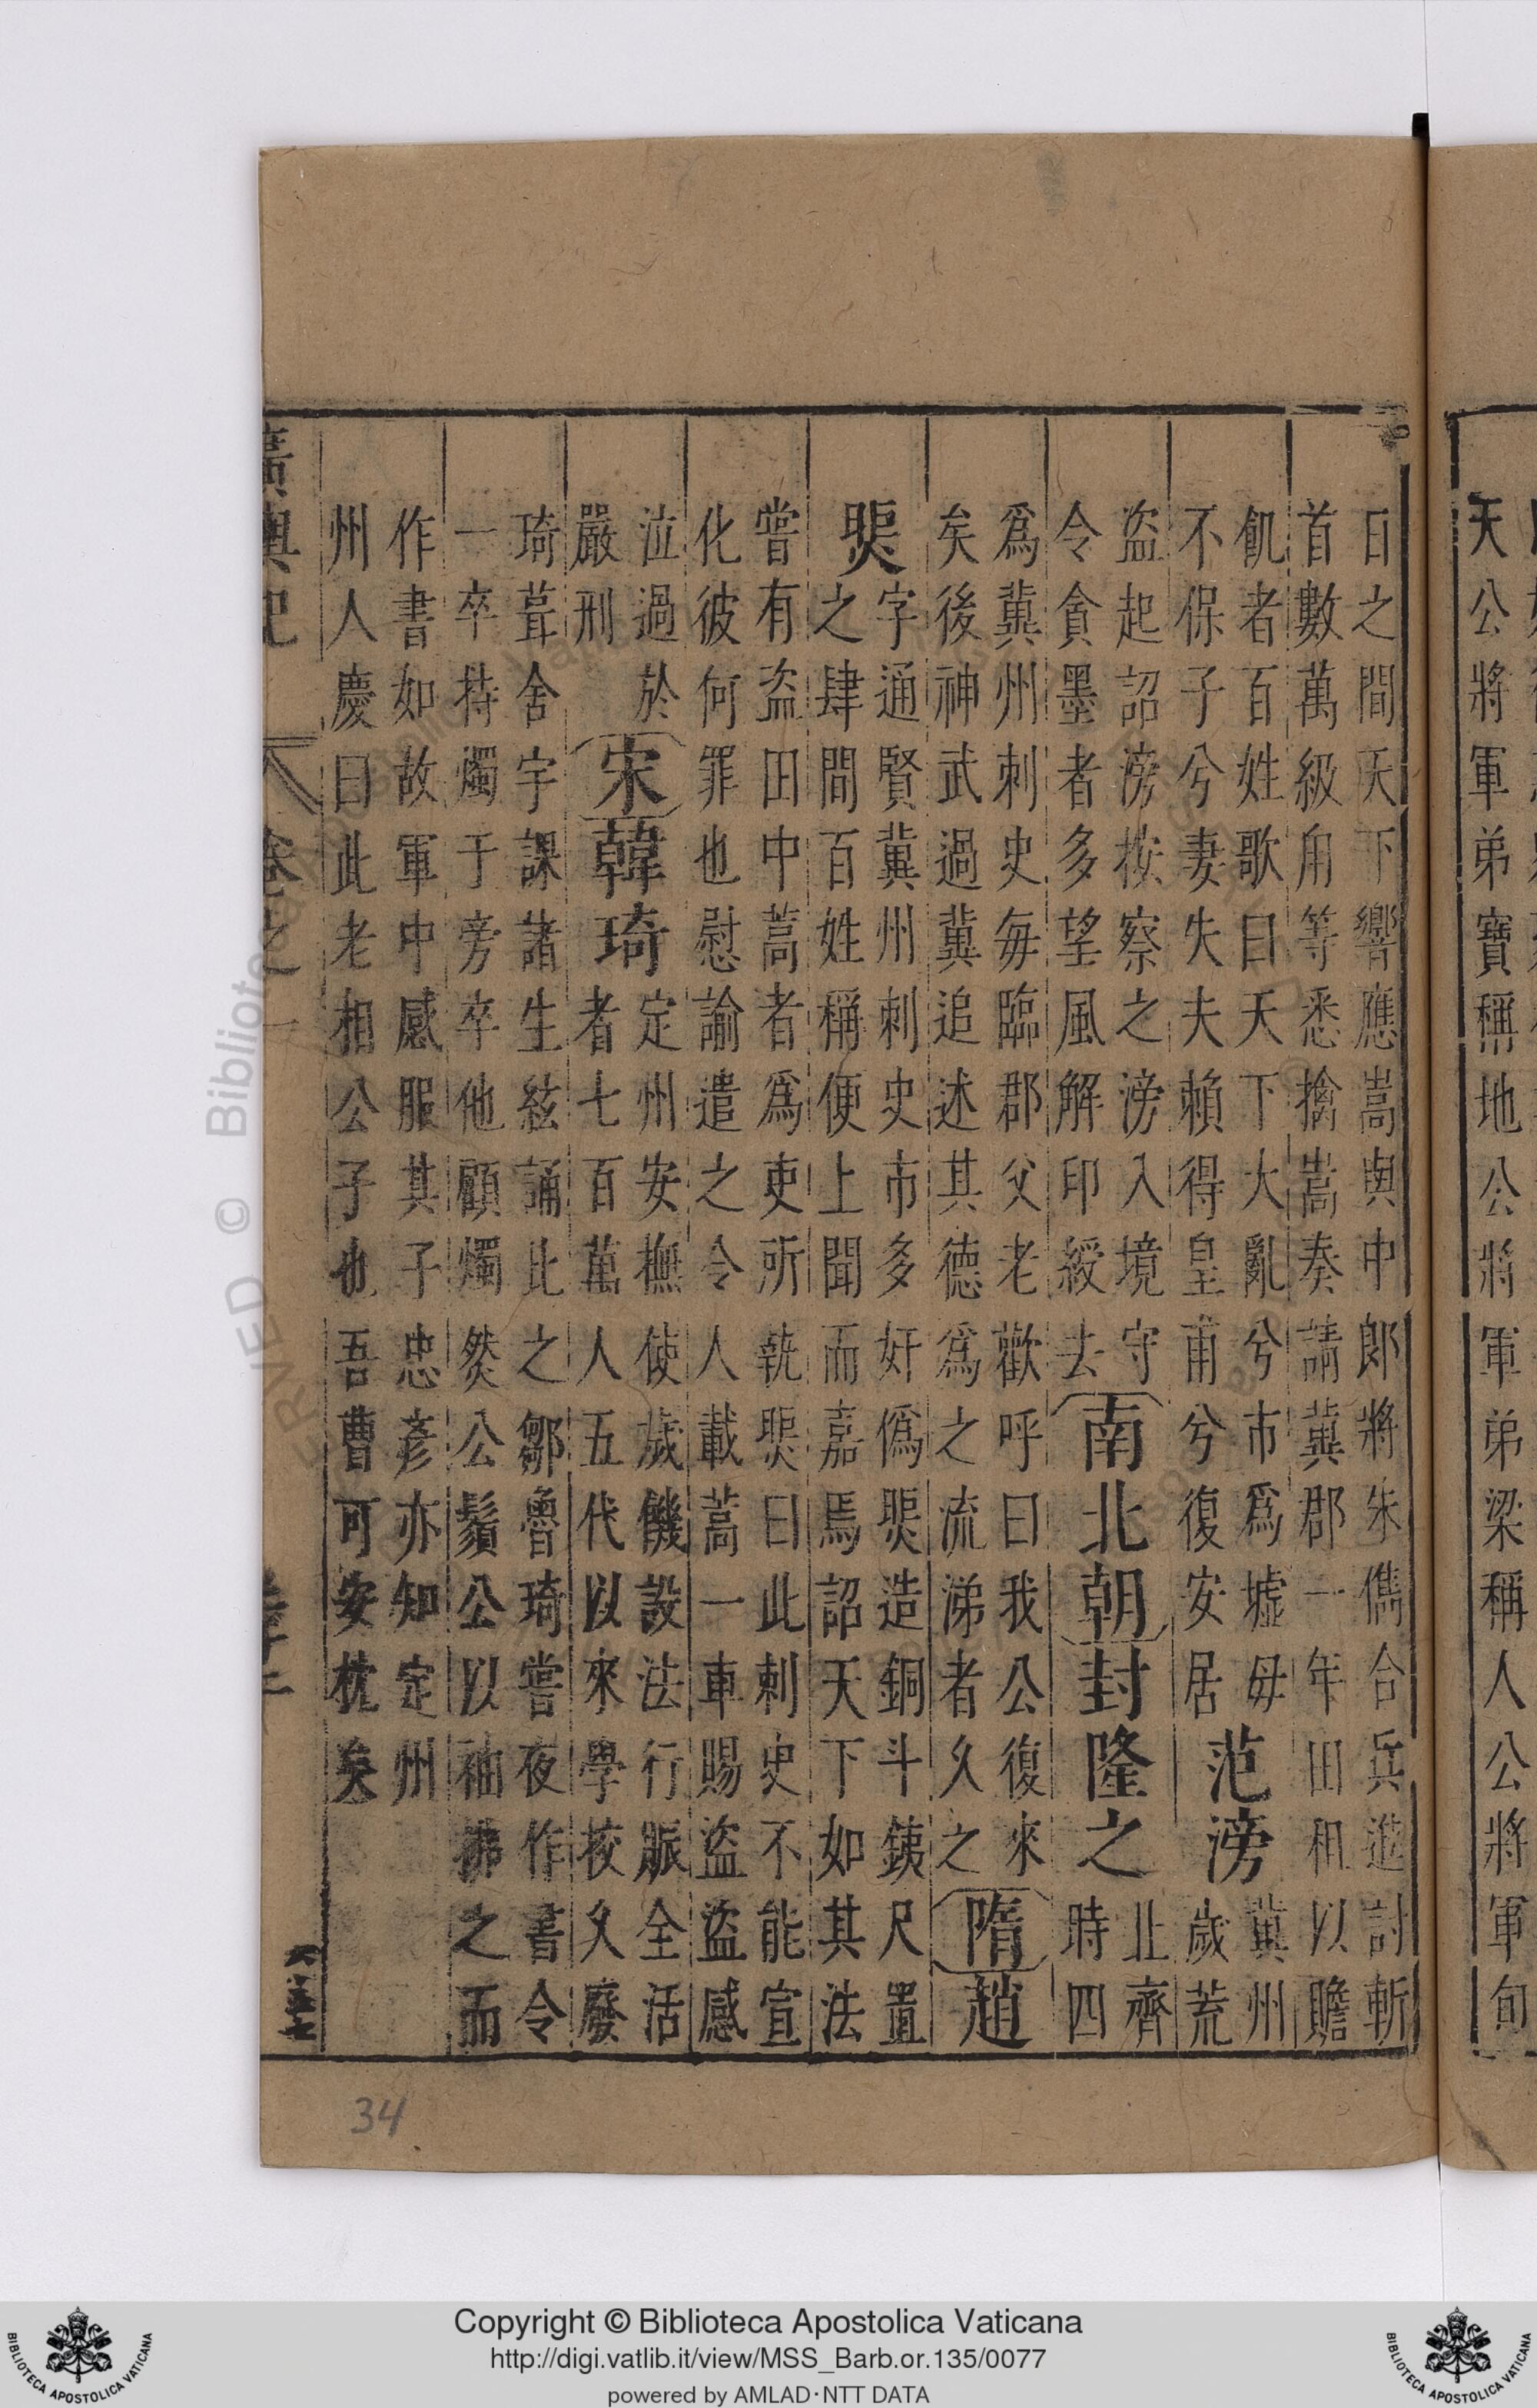 日之間天下響應嵩與中郎將朱儁合兵進討斬
首數萬級用等悉擒嵩奏請冀郡一年田租以贍
飢者百姓歌曰天下大亂兮市為墟母
不保子兮妻失夫賴得皇甫兮復安居
范滂
冀州
歲荒
盜起詔滂按察之滂入境守
令貪墨者多望風解印綬去
南北朝封隆之
北齊
時四
爲冀州刺史每臨郡父老歡呼曰我公復來
矣後神武過冀追述其德爲之流涕者久之
隋趙
煚
字通賢冀州刺史市多奸僞煚造銅斗鉄尺置
之肆間百姓稱便上聞而嘉焉詔天下如其法
嘗有盗田中蒿者爲吏所執煚曰此刺史不能宣
化彼何罪也慰諭遣之令人載蒿一車賜盜盜感
泣過於
嚴刑
宋韓琦
定州安撫使歲饑設法行賑全活
者七百萬人五代以來學挍久廢
琦葺舍宇課諸生絃誦比之鄒魯琦嘗夜作書令
一卒持燭于旁卒他顧燭燃公鬚公以袖拂之而
作書如故軍中感服其子忠彦亦知定州
州人慶曰此老相公子也吾曹可安枕矣
廣輿記
卷之一
天公將軍弟寶稱地公將軍弟梁稱人公將軍旬
34
Copyright © Biblioteca Apostolica Vaticana
http://digi.vatlib.it/view/MSS_Barb.or.135/0077
powered by AMLAD·NTT DATA
BIBLIOTECA APOSTOLICA VATICANA
BIBLIOTECA APOSTOLICA VATICANA